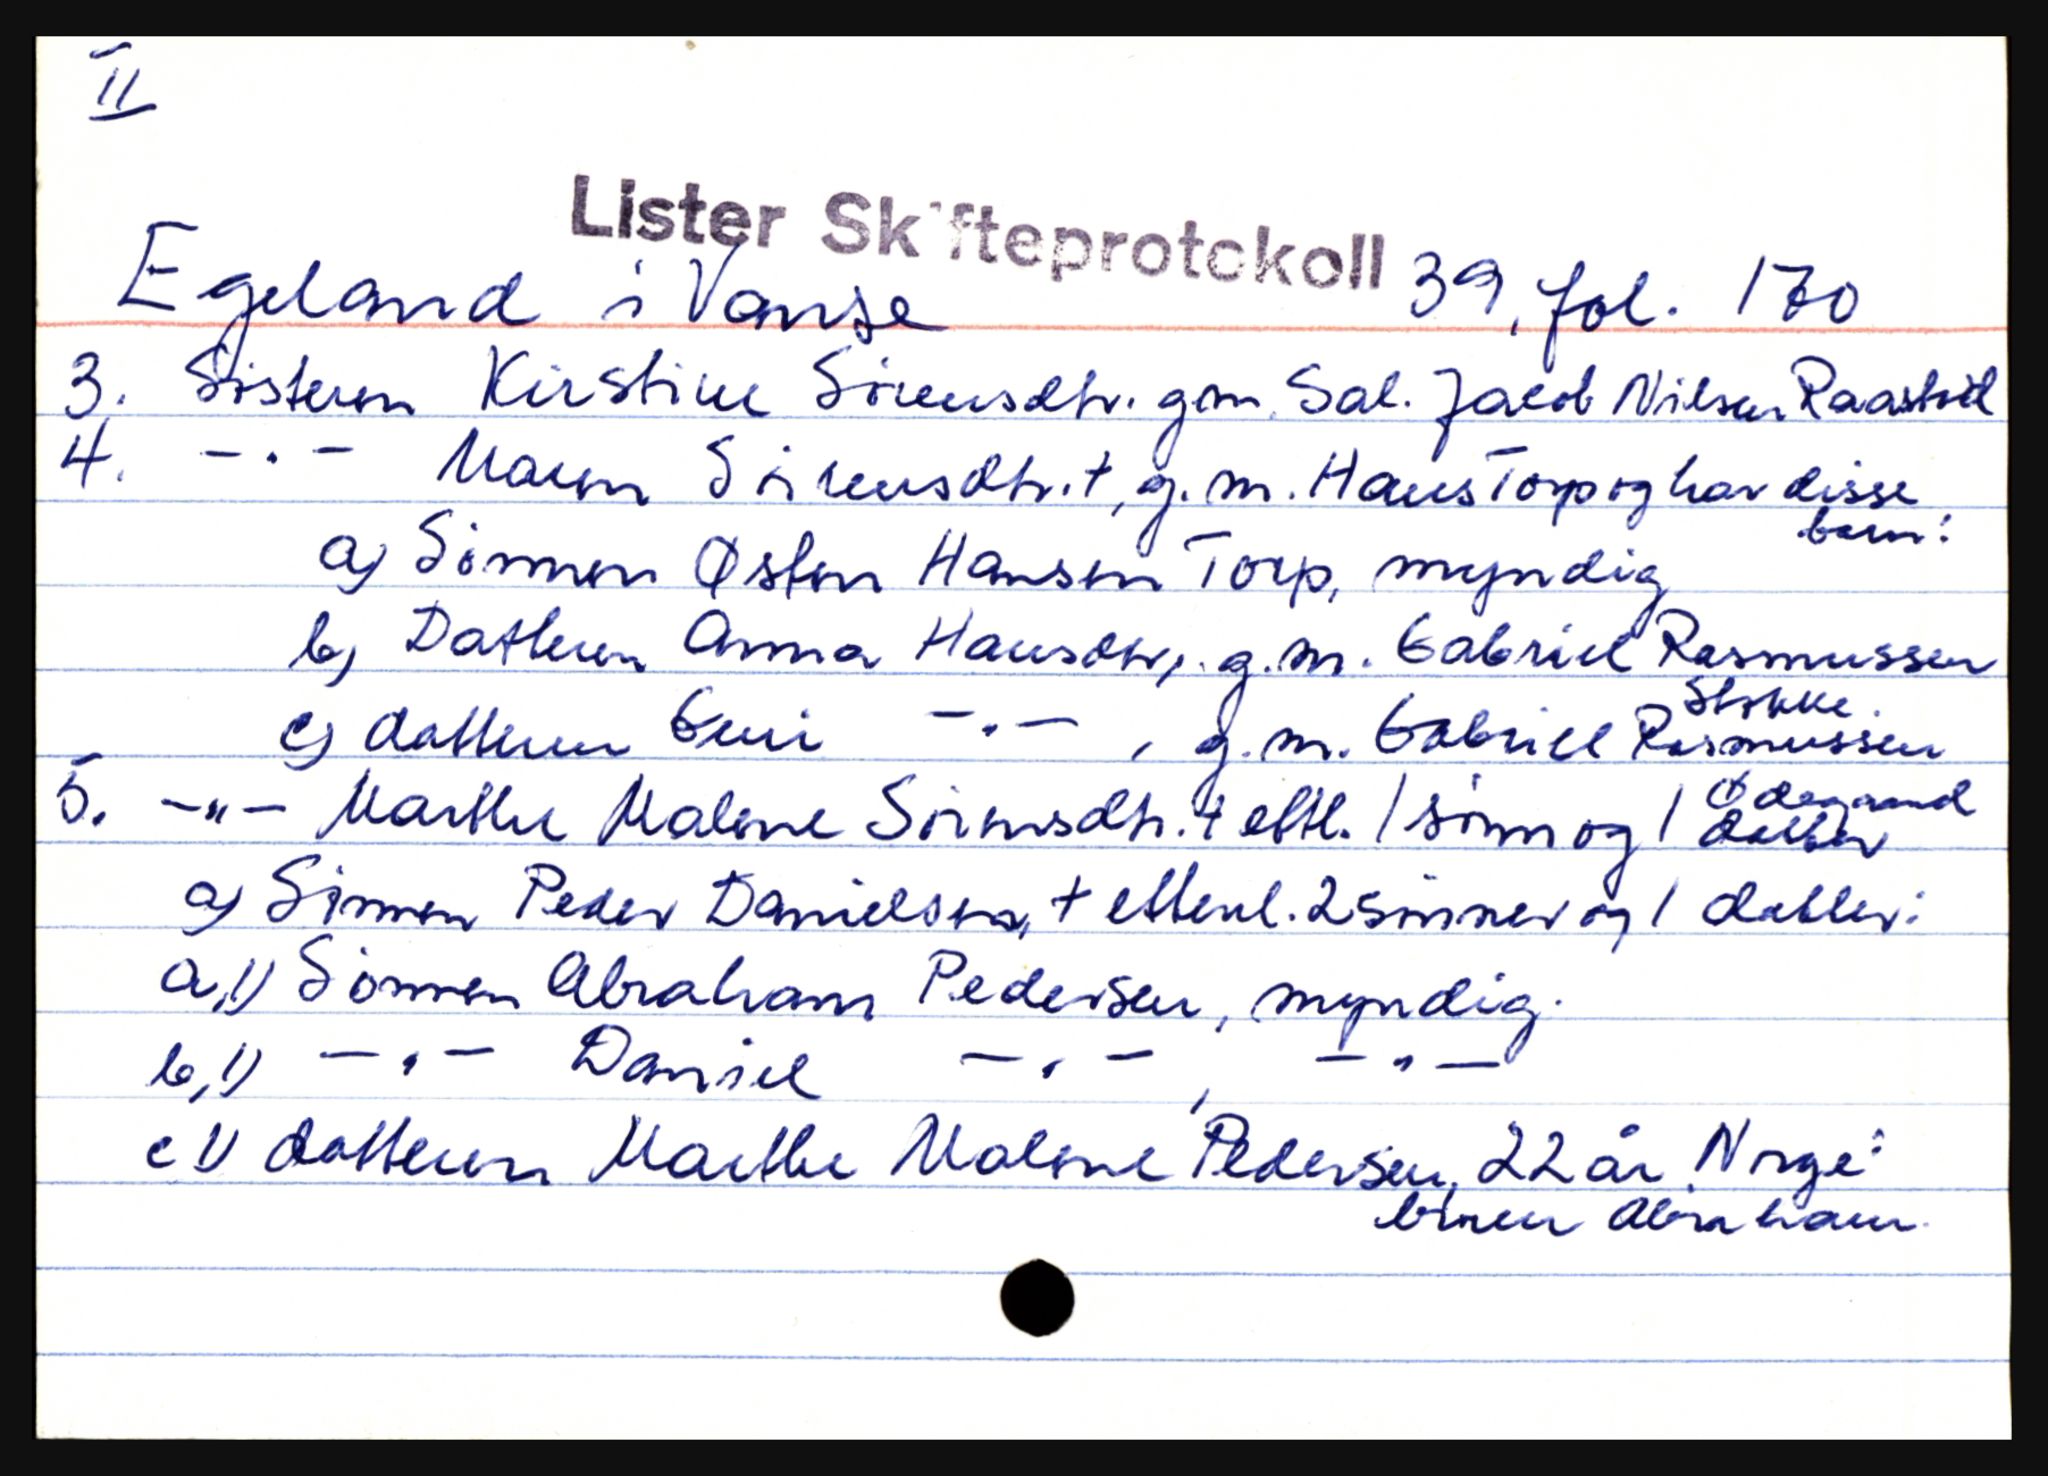 II
Lister Skifteprotokoll 39, fol. 170
Egeland i Vanse
3. Søsteren Kirstine Sørensdtr. gm. Sal. Jacob Nilsen Raastad
4. -"- Maren Sørensdtr. +, g.m. Hans Torp og har disse
barn:
a) Sønnen Østen Hansen Torp, myndig
b) Datteren Anna Hansdtr., g.m. Gabriel Rasmussen
Stokke.
c) datteren Guri -"-, g.m. Gabriel Rasmussen
Ødegaard
5. -"- Marthe Malene Sørensdtr. + eftl. 1 sønn og 1 datter
a) Sønnen Peder Danielsen, + efterl. 2 sønner og 1 datter:
a,1) Sønnen Abraham Pedersen, myndig.
b,1) -"- Daniel -"-, -"-
c 1) datteren Marthe Malene Pedersen, 22 år Norge:
broren Abraham.